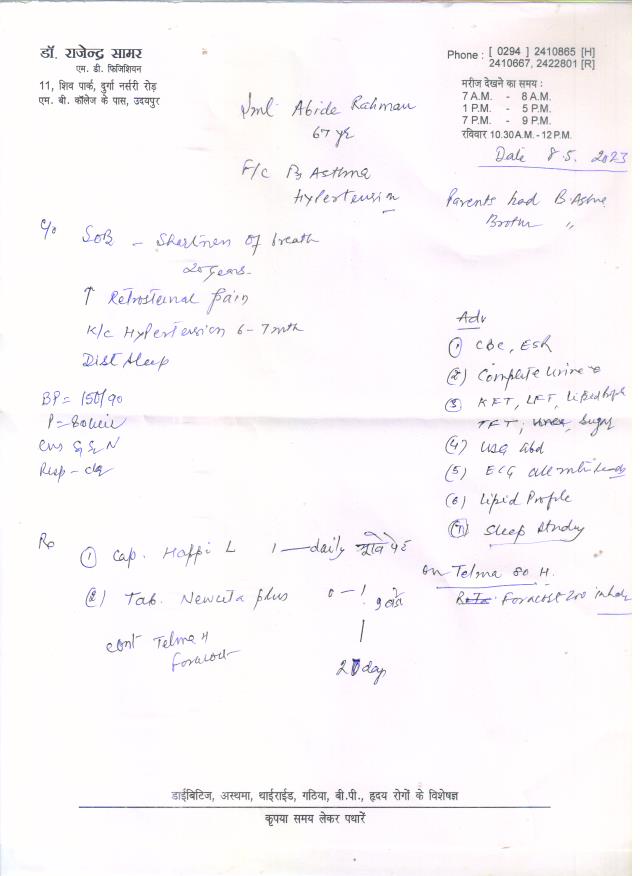 डॉ. राजेन्द्र सामर
एम. डी. फिजिशियन
11, शिव पार्क, दुर्गा नर्सरी रोड़
एम. बी. कॉलेज के पास, उदयपुर
Phone : [ 0294 ] 2410865 [H]
2410667, 2422801 [R]
मरीज देखने का समय :
7 A.M. - 8 A.M.
1 P.M. - 5 P.M.
7 P.M. - 9 P.M.
रविवार 10.30 A.M. - 12 P.M.
Date 8.5. 2023
Abide Rahman
67 yr
F/c Asthma
Hypertension
Parents had B. Asthma
Brother "
c/o SOB - Shortness of breath
20 years
↑ Retrosternal pain
K/c Hypertension 6-7 mth
Dist sleep
BP = 150/90
P =
Resp -
Adv
(1) CBC, ESR
(2) Complete Urine
(3) KFT, LFT, Lipid
TFT, Sugar
(4) USG abd
(5) ECG
(6) Lipid Profile
(7) Sleep Study
Rx
(1) Cap. Happi L 1 — daily भूखे पेट
(2) Tab. Newcita plus 0 — 1
cont Telma H
Foracort
day
on Telma 80 H.
Foracort 200
डाईबिटिज, अस्थमा, थाईराईड, गठिया, बी.पी., हृदय रोगों के विशेषज्ञ
कृपया समय लेकर पधारें